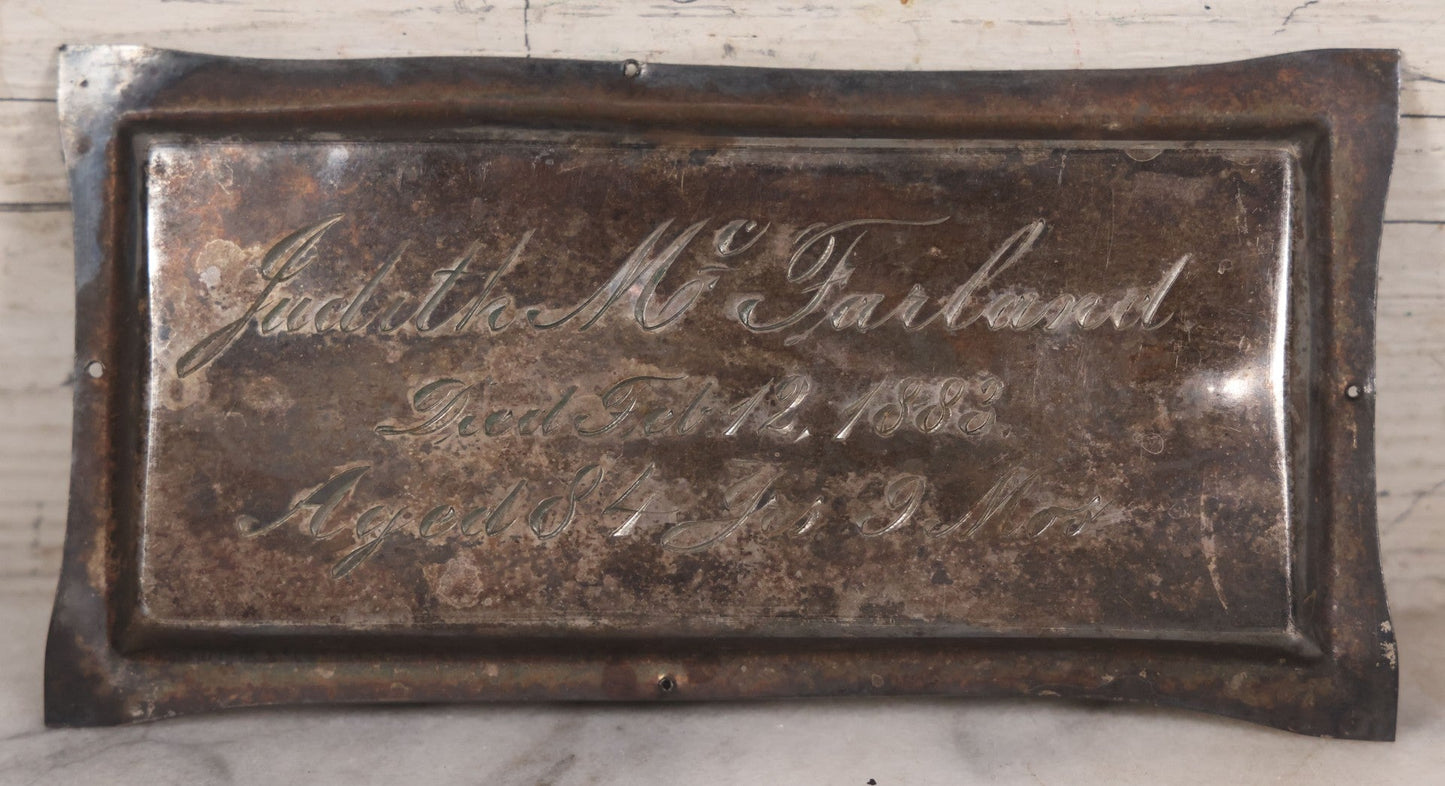 Judith Mc Farland
Died Feb 12, 1883.
Aged 84 Yrs 9 Mos